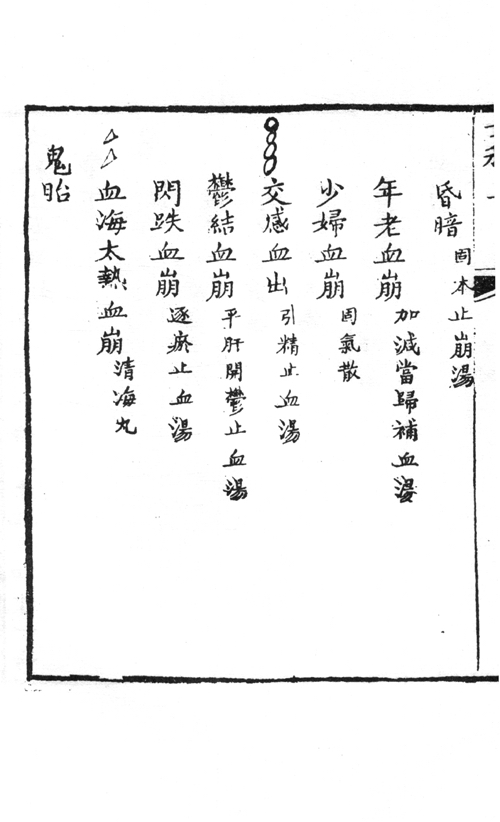 昏暗 固本止崩湯
年老血崩 加減當歸補血湯
少婦血崩 固氣散
交感血出 引精止血湯
鬱結血崩 平肝開鬱止血湯
閃跌血崩 逐瘀止血湯
血海太熱血崩 清海丸
鬼胎